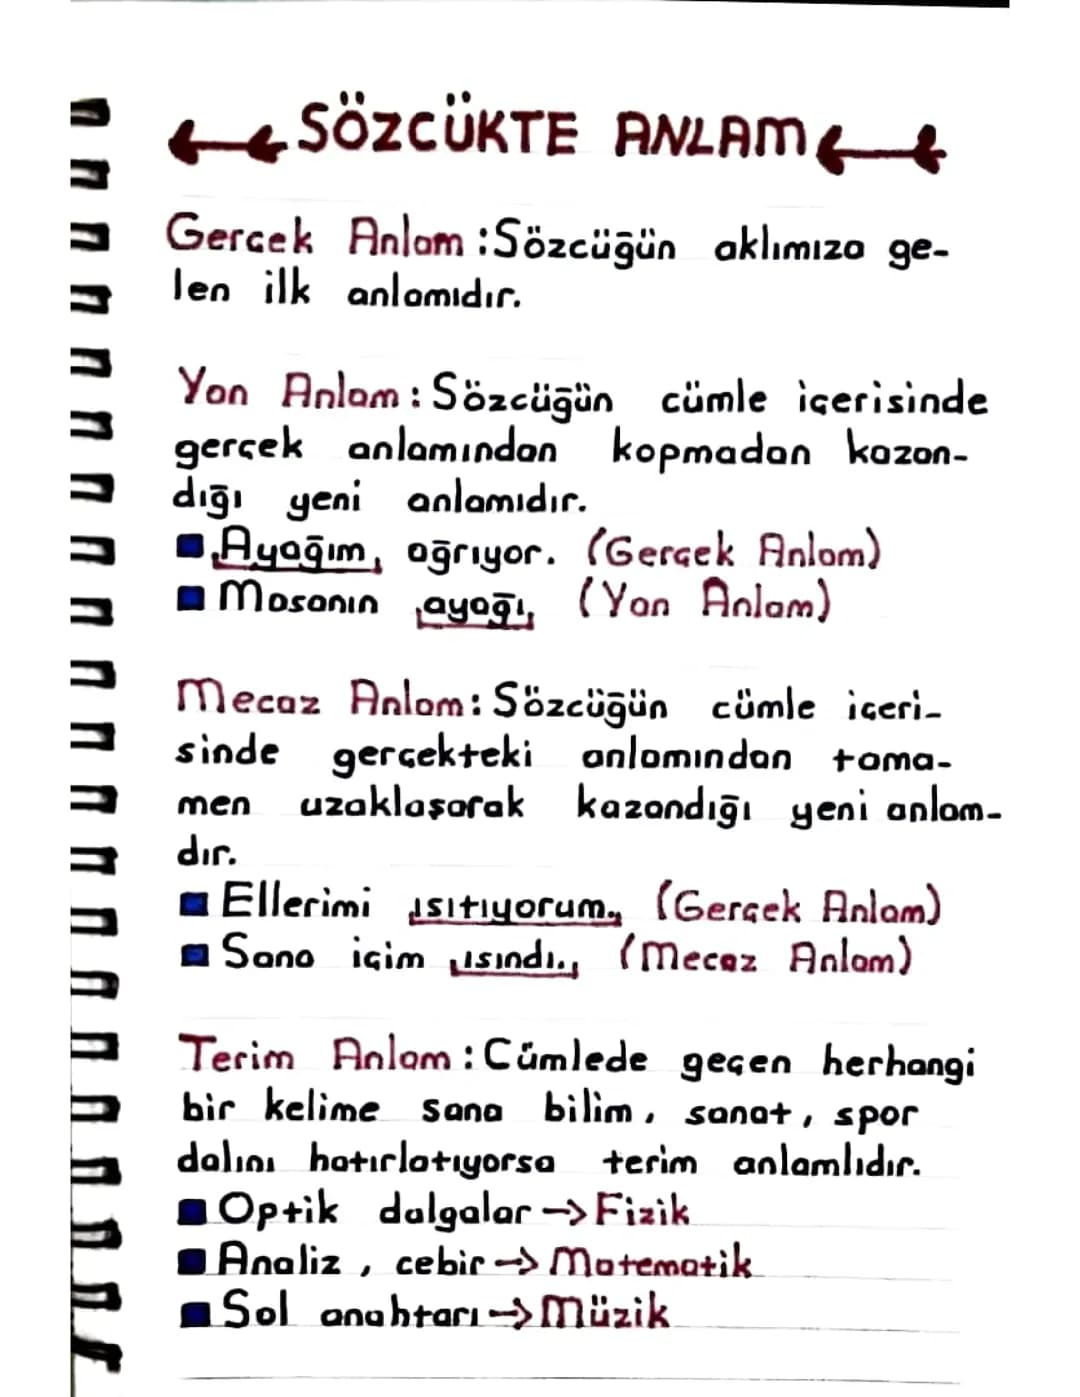 SÖZCÜKTE ANLAM
Gerçek Anlam : Sözcüğün aklımıza ge-
len ilk anlamıdır.
Yan Anlam : Sözcüğün cümle içerisinde
gerçek anlamından kopmadan kazan-
dığı yeni anlamıdır.
Ayağım ağrıyor. (Gerçek Anlam)
Masanın ayağı (Yan Anlam)
Mecaz Anlam : Sözcüğün cümle içeri-
sinde gerçekteki anlamından tama-
men uzaklaşarak kazandığı yeni anlam-
dır.
Ellerimi ısıtıyorum. (Gerçek Anlam)
Sana içim ısındı. (Mecaz Anlam)
Terim Anlam : Cümlede geçen herhangi
bir kelime sana bilim, sanat, spor
dalını hatırlatıyorsa terim anlamlıdır.
Optik dalgalar → Fizik
Analiz, cebir → Matematik
Sol anahtarı → Müzik